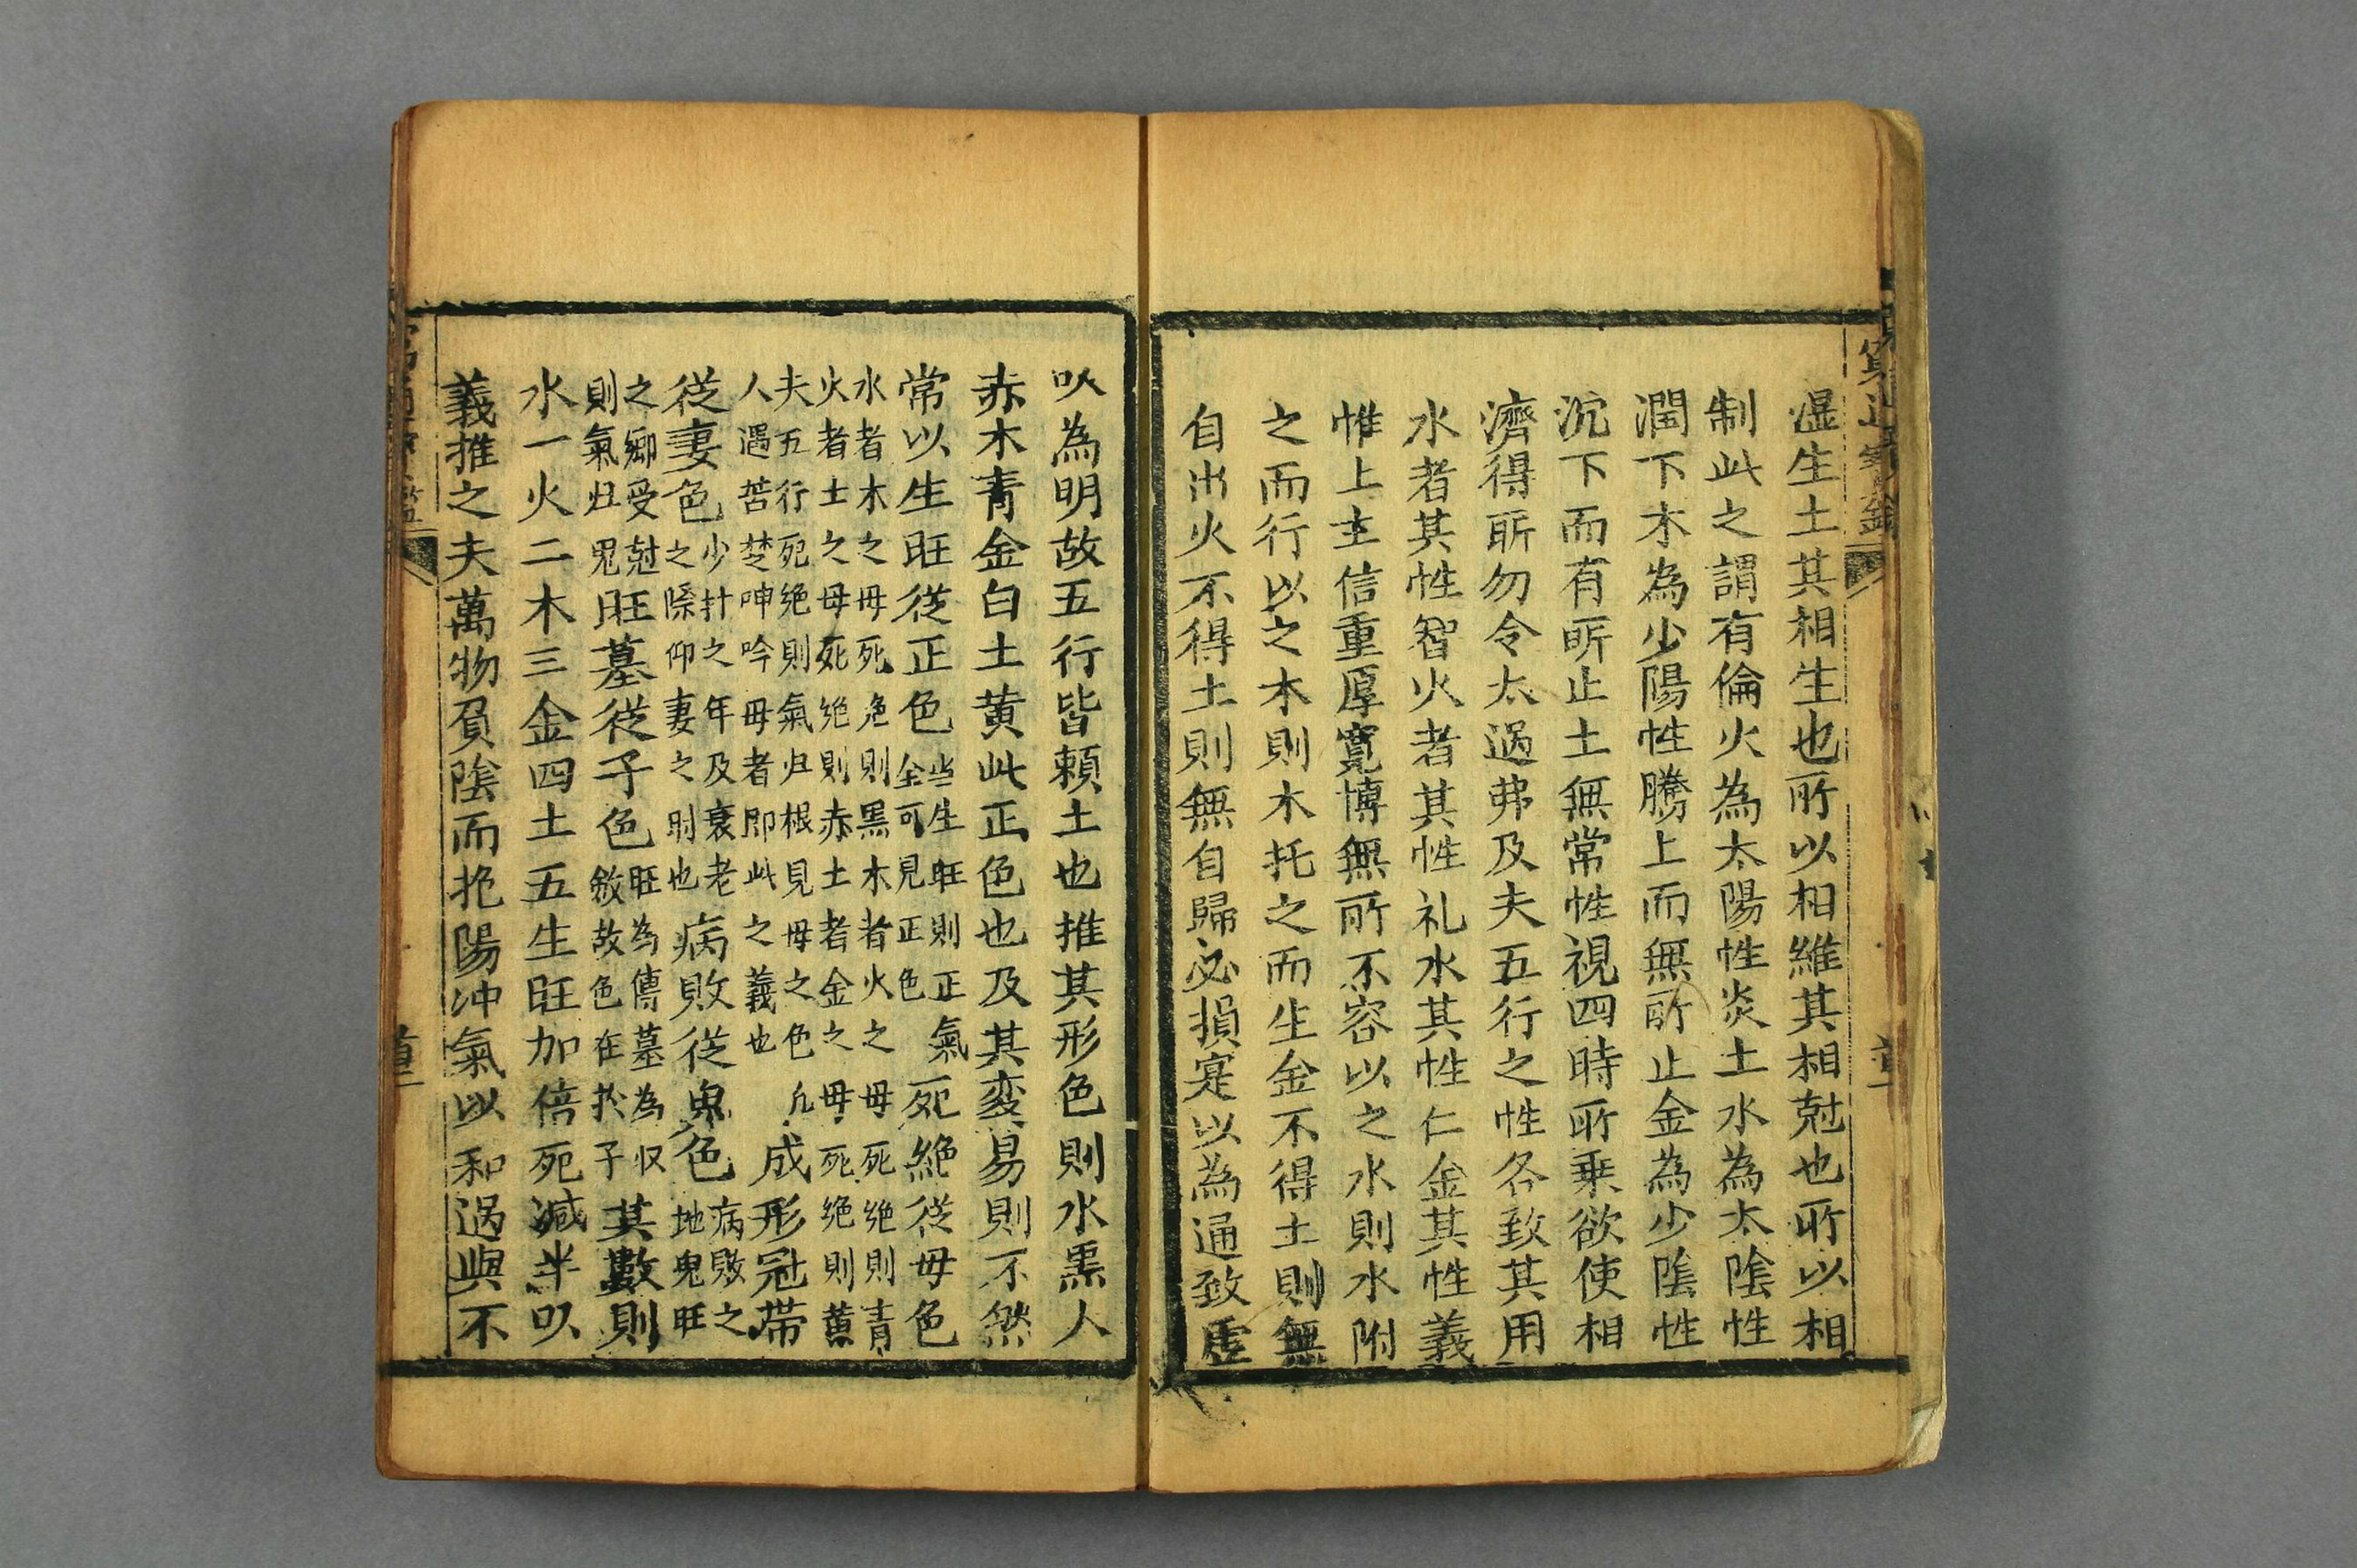 湿生土其相生也所以相維其相尅也所以相
制此之謂有倫火為太陽性炎土水為太陰性
潤下木為少陽性騰上而無所止金為少陰性
沉下而有所止土無常性視四時所乗欲使相
濟得所勿令太過弗及夫五行之性各致其用
水者其性智火者其性礼水其性仁金其性義
惟上主信重厚寛博無所不容以之水則水附
之而行以之木則木托之而生金不得土則無
自出火不得土則無自歸必損寔以為通致虛
以為明故五行皆頼土也推其形色則水黒人
赤木青金白土黄此正色也及其変易則不然
常以生旺從正色
当生旺則正氣
全可見正色
死絶從母色
水者木之母死絶則黒木者火之母死绝則青
火者土之母死绝則赤土者金之母死绝則黄
夫五行死绝則氣归根見母之色
人遇苦楚呻吟母者即此之義也
凡成形冠帯
從妻色
少計之年及衰老
之際仰妻之財也
病敗從鬼色
病敗之
地鬼旺
之鄉受尅
則氣归鬼
旺墓從子色
旺為傳墓為収
斂故色在於子
其數則
水一火二木三金四土五生旺加倍死減半以
義推之夫萬物負陰而抱陽冲氣以和過與不